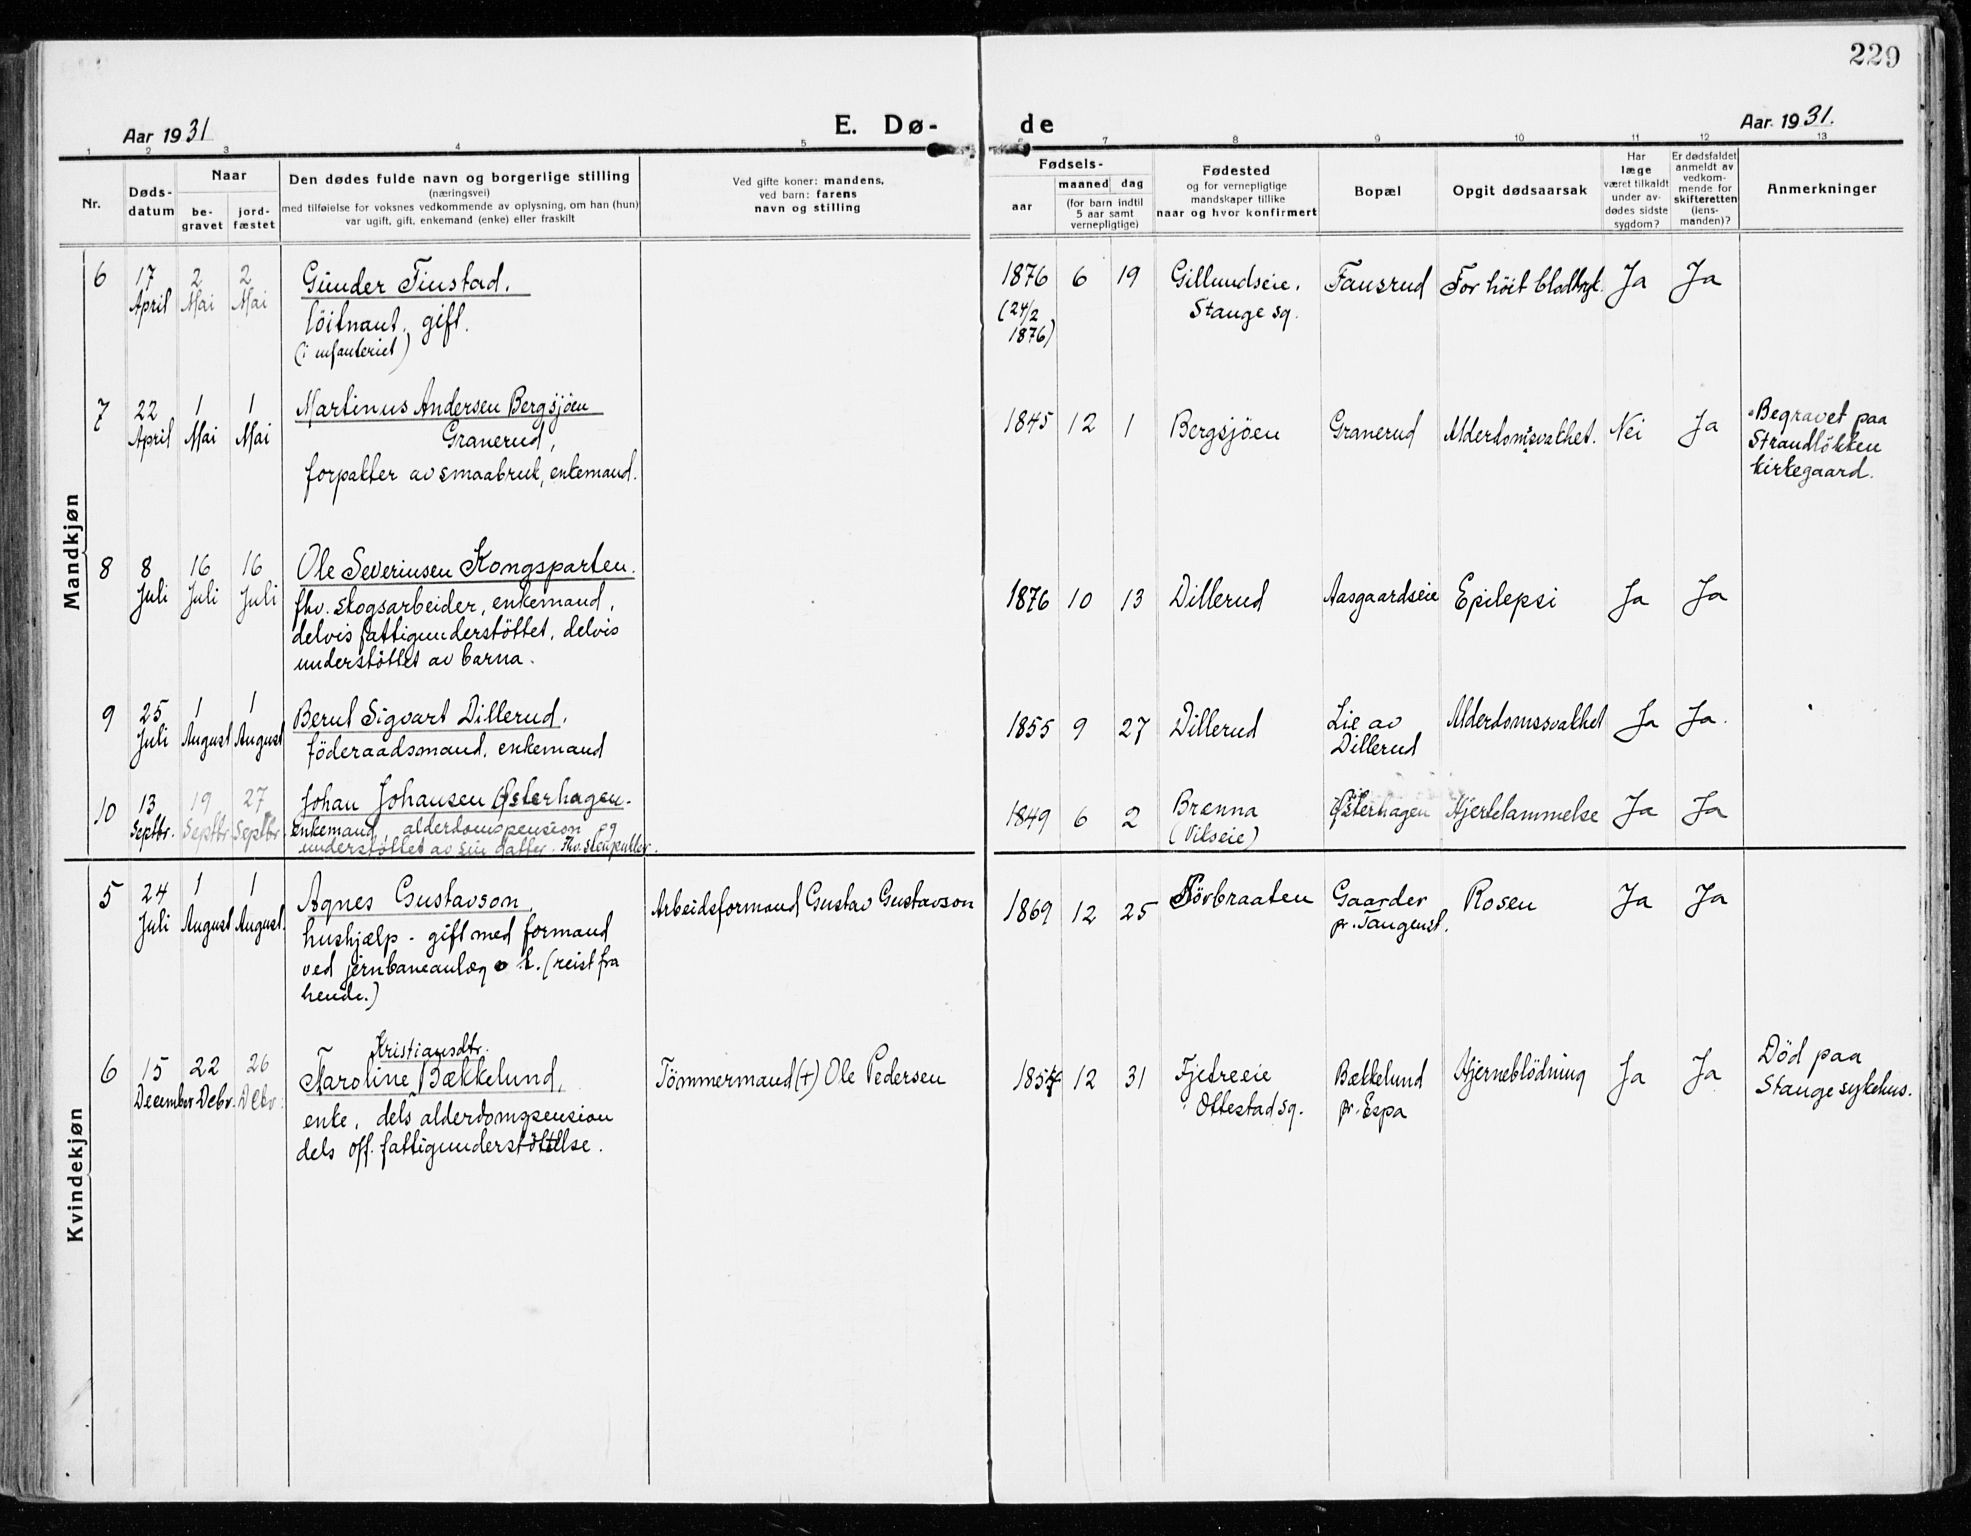 229
Aar 1931
E. Dø-
de
Aar 1931.
1 2 3 4 5 6 7 8 9 10 11 12 13
Nr.
Døds-
datum
Naar
be-
gravet
jord-
fæstet
Den dødes fulde navn og borgerlige stilling
(næringsvei)
med tilføielse for voksnes vedkommende av oplysning, om han (hun)
var ugift, gift, enkemand (enke) eller fraskilt
Ved gifte koner: mandens,
ved barn: farens
navn og stilling
Fødsels-
aar
maaned dag
(for barn indtil
5 aar samt
vernepligtige)
Fødested
og for vernepligtige
mandskaper tillike
naar og hvor konfirmert
Bopæl
Opgit dødsaarsak
Har
læge
været tilkaldt
under av-
dødes sidste
sygdom?
Er dødsfaldet
anmeldt av
vedkom-
mende for
skifteretten
(lens-
manden)?
Anmerkninger
Mandkjøn
6
17
April
2
Mai
2
Mai
Gunder Finstad.
löitnant, gift.
(i infanteriet)
1876 6 19
(24/2
1876)
Gillundseie,
Stange sg.
Fausrud
For höit blodtryk.
Ja
Ja
7
22
April
1
Mai
1
Mai
Martinus Andersen Bergsjöen
Granerud,
forpakter av smaabruk, enkemand.
1845 12 1
Bergsjöen
Granerud
Alderdomsvakhet.
Nei
Ja
Begravet paa
Strandlökken
kirkegaard.
8
8
Juli
16
Juli
16
Juli
Ole Severinsen Kongsparten.
fhv. skogsarbeider, enkemand,
delvis fattigunderstöttet, delvis
understöttet av barna.
1876 10 13
Dillerud
Aasgaardseie
Epilepsi
Ja
Ja
9
25
Juli
1
August
1
August
Bernt Sigvart Dillerud,
föderaadsmand, enkemand
1855 9 27
Dillerud
Lie av
Dillerud
Alderdomssvakhet
Ja
Ja.
10
13
Septbr.
19
Septbr.
27
Septbr.
Johan Johansen Østerhagen.
enkemand, alderdomspension og
understöttet av sin datter. Fhv. stenpukker.
1849 6 2
Brenna
(Vikseie)
Østerhagen
Hjertelammelse
Ja
Ja
Kvindekjøn
5
24
Juli
1
August
1
August.
Agnes Gustavson,
hushjælp - gift med formand
ved jernbaneanlæg o. l. (reist fra
hende.)
Arbeidsformand Gustav Gustavson
1869 12 25
Sörbraaten
Gaarder
pr. Tangenst.
Rosen
Ja
Ja
6
15
December
22
Debr.
26
Debr.
Kristiansdtr.
Karoline Bækkelund,
enke, dels alderdomspension
dels off. fattigunderstöttelse.
Tömmermand (+) Ole Pedersen
12 31
Fjetreeie
Ottestad sg.
Bækkelund
pr. Espa
Hjerneblödning
Ja
Ja
Död paa
Stange sykehus.